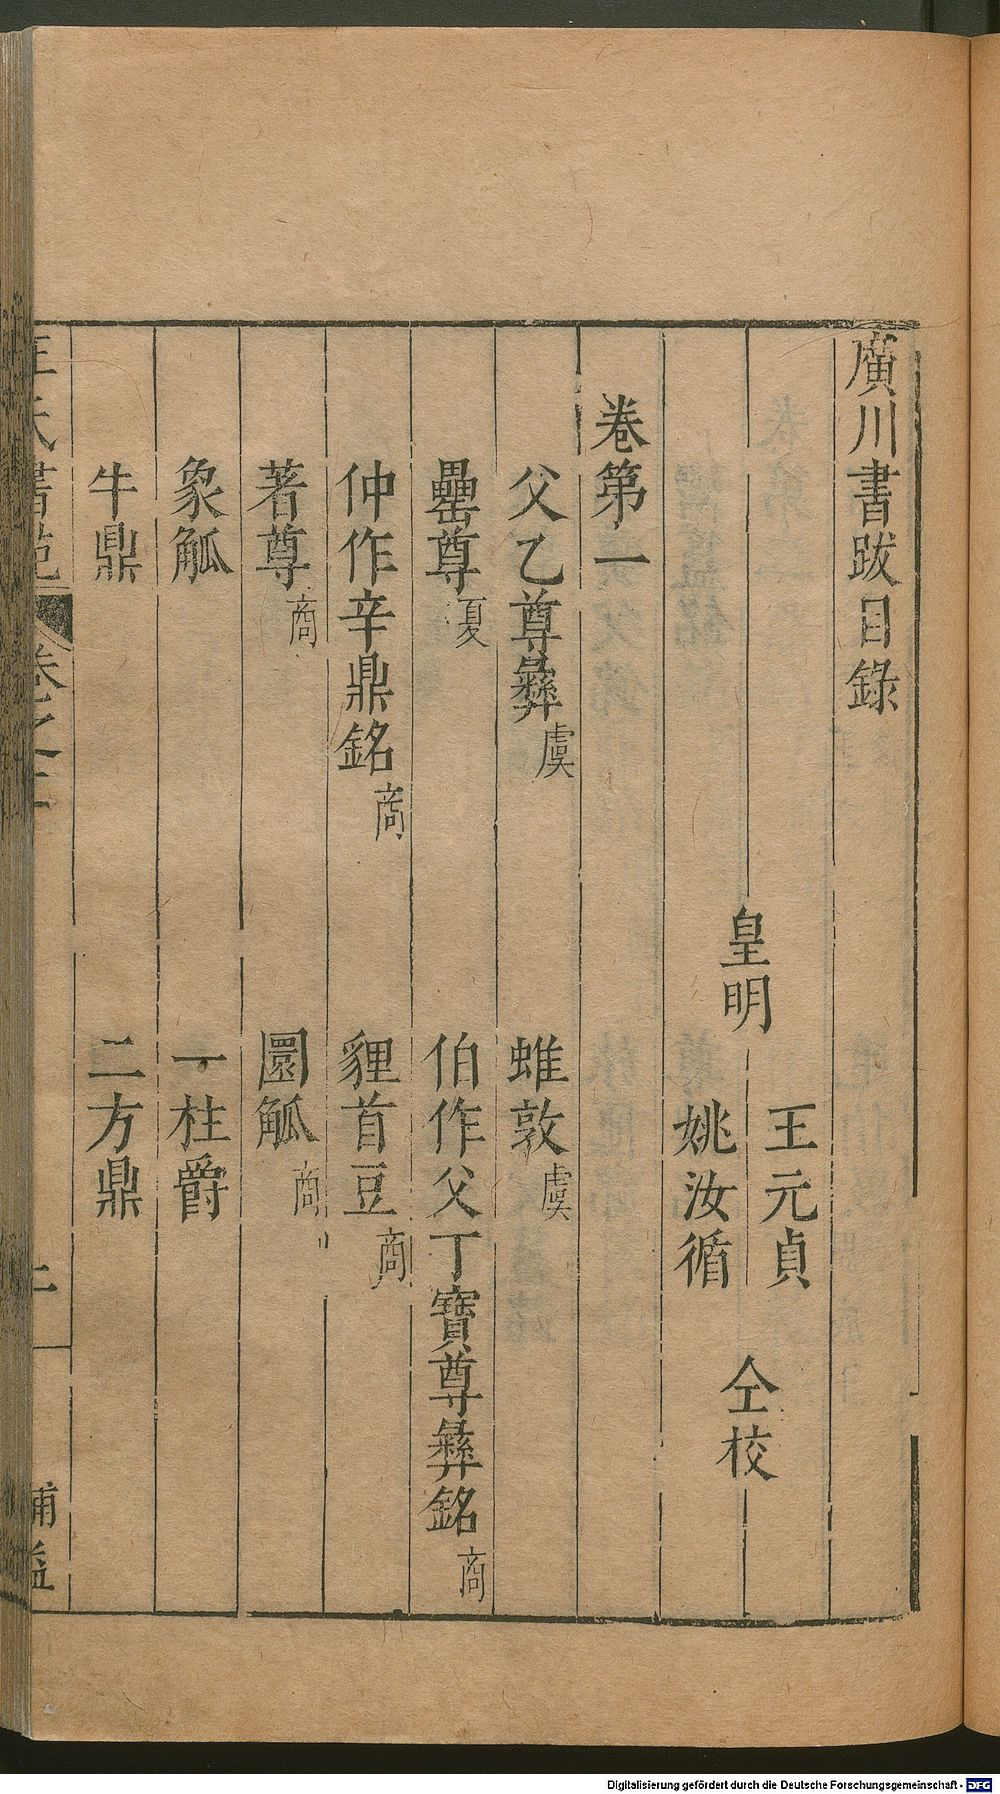 廣川書跋目錄
皇明
王元貞
姚汝循
仝校
卷第一
父乙尊彝虞
蜼敦虞
罍尊夏
伯作父丁寶尊彝銘商
仲作辛鼎銘商
貍首豆商
著尊商
圜觚商
象觚
一柱爵
牛鼎
二方鼎
王氏書苑
卷之三
補益
Digitalisierung gefördert durch die Deutsche Forschungsgemeinschaft - DFG